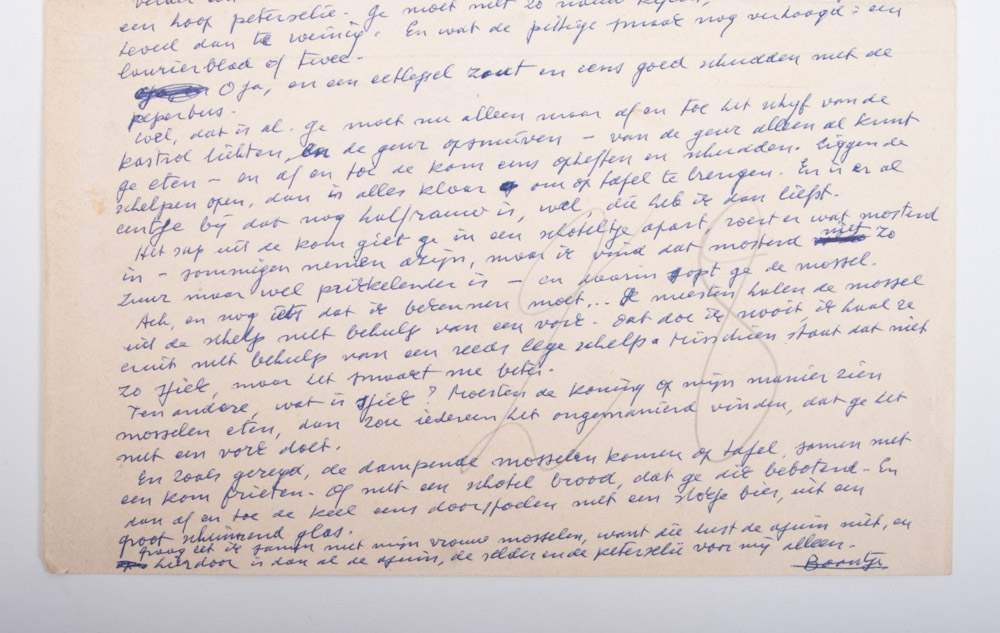 een hoop peterselie. Ge moet niet zo
teveel dan te weinig. En wat de pittige smaak nog verhoogd: een
laurierblad of twee.
O ja, en een eetlepel zout en eens goed schudden met de
peperbus.
Wel, dat is al. Ge moet nu alleen maar af en toe het schijf van de
kastrol lichten, en de geur opsnuiven – van de geur alleen al kunt
ge eten – en af en toe de kom eens opheffen en schudden. Liggen de
schelpen open, dan is alles klaar om op tafel te brengen. En is er al
eentje bij dat nog halfrauw is, wel, die heb ik dan liefst.
Het sap uit de kom giet ge in een schoteltje apart, roert er wat mosterd
in – sommigen nemen azijn, maar ik vind dat mosterd niet zo
zuur maar wel prikkelender is – en daarin sopt ge de mossel.
Ach, en nog iets dat ik bekennen moet... De meesten halen de mossel
uit de schelp met behulp van een vork. Dat doe ik nooit, ik haal ze
eruit met behulp van een reeds lege schelp. Misschien staat dat niet
zo sjiek, maar het smaakt me beter.
Ten andere, wat is sjiek? Moesten de koning op mijn manier zien
mosselen eten, dan zou iedereen het ongemanierd vinden, dat ge het
met een vork doet.
En zoals gezegd, de dampende mosselen komen op tafel, samen met
een kom frieten. Of met een schotel brood, dat ge dik beboterd. En
dan af en toe de keel eens doorspoelen met een slokje bier, uit een
groot schuimend glas.
Graag eet ik samen met mijn vrouw mosselen, want die lust de ajuin niet, en
hierdoor is dan al de ajuin, de selder en de peterselie voor mij alleen.
Boontje